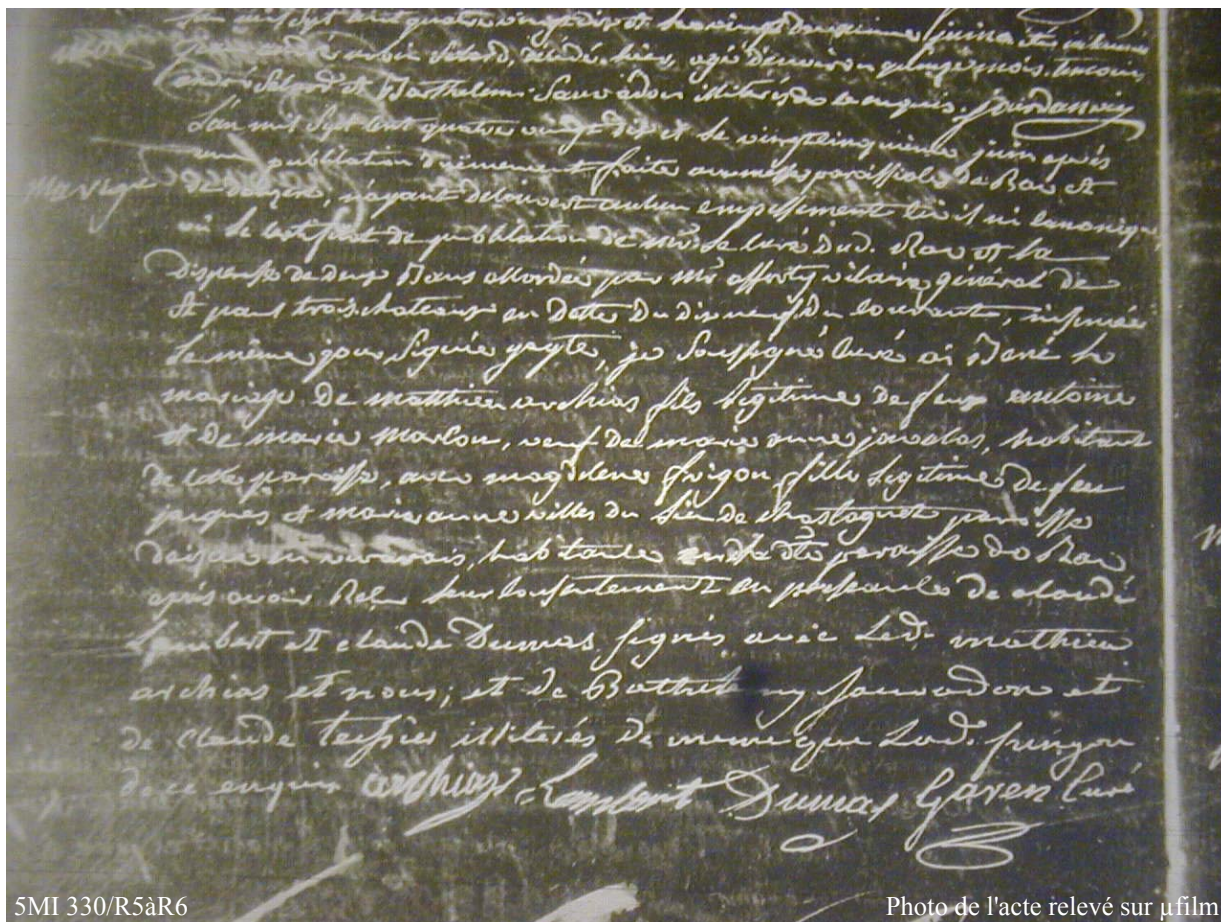 L'an mil sept cent quatre vingt dix et le vingt deuxieme juin a été inhumé
décédé hier, agé d'environ quinze mois. temoins
andré et Barthelemi Sauvadon illiterés de ce enquis.
L'an mil sept cent quatre vingt dix et le vingtcinquieme juin après
une publication duement faite a messe paroissiale de Bae et
mariage de n'ayant decouvert aucun empechement civil ni canonique,
vu le certificat de publication de mr. le curé dud. et la
dispense de deux Bans accordée par Mr vicaire général de
St paul trois chateaux en datte du dix neuf du courant, insinuée
le même jour, signée je soussigné curé ai Beni le
mariage de matthieu archias fils légitime de feu antoine
et de marie marcou, veuf de marie anne habitant
de cette paroisse, avec magdelene frigon fille legitime de feu
jacques et marie anne du lieu de paroisse
en vivarais, habitante paroisse de
après avoir Reçu leur consentement en presence de claude
Lambert et claude Dumas signés avec led. mathieu
archias et nous; et de Barthelemy sauvadon et
de Claude teissier illiterés de meme que Lad. fringon
de ce enquis archias Lambert Dumas Garen Curé
5MI 330/R5àR6
Photo de l'acte relevé sur µfilm